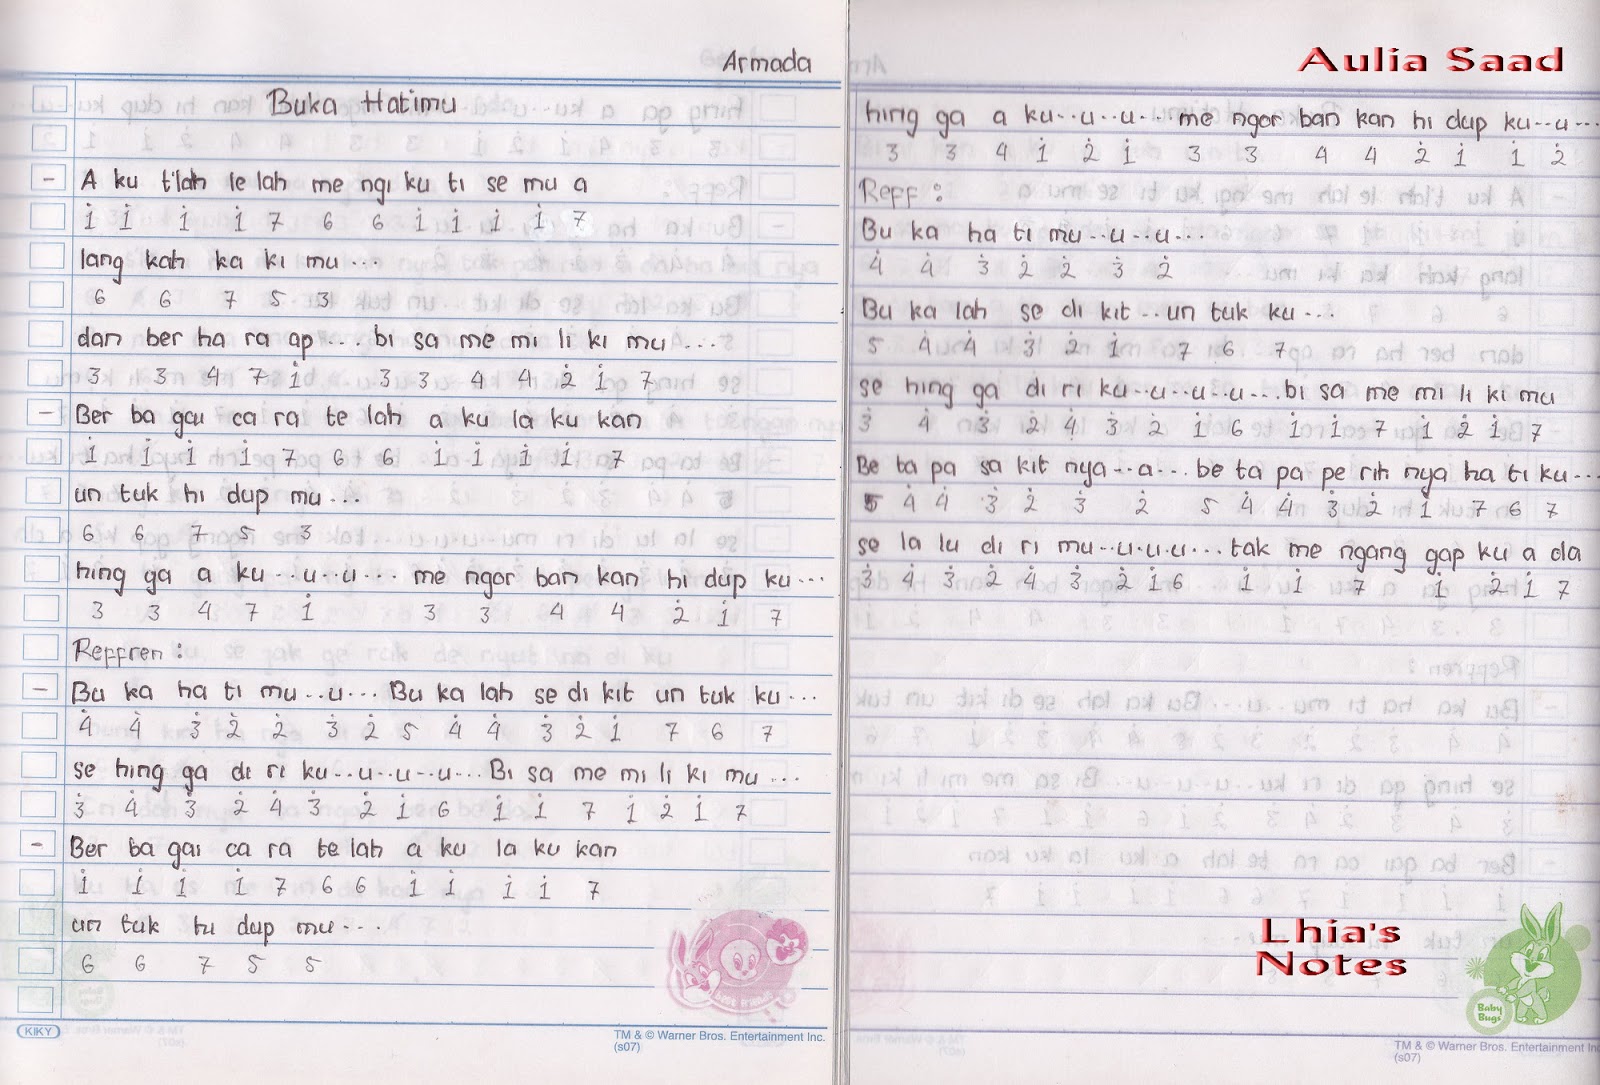 Armada
Buka Hatimu
- A ku t'lah le lah me ngi ku ti se mu a
i̇ i̇ i̇ i̇ 7 6 6 i̇ i̇ i̇ i̇ 7
lang kah ka ki mu ...
6 6 7 5 3
dan ber ha ra ap .... bi sa me mi li ki mu ....
3 3 4 7 i̇ 3 3 4 4 2̇ i̇ 7
- Ber ba gai ca ra te lah a ku la ku kan
i̇ i̇ i̇ i̇ 7 6 6 i̇ i̇ i̇ i̇ 7
un tuk hi dup mu ...
6 6 7 5 3
hing ga a ku ..u..u.... me ngor ban kan hi dup ku...
3 3 4 7 i̇ 3 3 4 4 2̇ i̇ 7
Reffren :
- Bu ka ha ti mu ..u... Bu ka lah se di kit un tuk ku ...
4̇ 4̇ 3̇ 2̇ 2̇ 3̇ 2̇ 5 4̇ 4̇ 3̇ 2̇ i̇ 7 6 7
se hing ga di ri ku..u..u..u... Bi sa me mi li ki mu ...
3̇ 4̇ 3̇ 2̇ 4̇ 3̇ 2̇ i̇ 6 i̇ i̇ 7 i̇ 2̇ i̇ 7
- Ber ba gai ca ra te lah a ku la ku kan
i̇ i̇ i̇ i̇ 7 6 6 i̇ i̇ i̇ i̇ 7
un tuk hi dup mu ...
6 6 7 5 5
KIKY
TM & © Warner Bros. Entertainment Inc.
(s07)
Aulia Saad
hing ga a ku..u..u.. me ngor ban kan hi dup ku..u...
3 3 4 i̇ 2̇ i̇ 3 3 4 4 2̇ i̇ i̇ 2̇
Reff :
Bu ka ha ti mu ..u..u...
4̇ 4̇ 3̇ 2̇ 2̇ 3̇ 2̇
Bu ka lah se di kit .. un tuk ku ...
5 4̇ 4̇ 3̇ 2̇ i̇ 7 6 7
se hing ga di ri ku..u..u..u... bi sa me mi li ki mu
3̇ 4̇ 3̇ 2̇ 4̇ 3̇ 2̇ i̇ 6 i̇ i̇ 7 i̇ 2̇ i̇ 7
Be ta pa sa kit nya..a... be ta pa pe rih nya ha ti ku...
5 4̇ 4̇ 3̇ 2̇ 3̇ 2̇ 5 4̇ 4̇ 3̇ 2̇ i̇ 7 6 7
se la lu di ri mu..u.u.u... tak me ngang gap ku a da
3̇ 4̇ 3̇ 2̇ 4̇ 3̇ 2̇ i̇ 6 i̇ i̇ 7 i̇ 2̇ i̇ 7
Lhia's
Notes
Baby
Bugs
TM & © Warner Bros. Entertainment Inc
(s07)